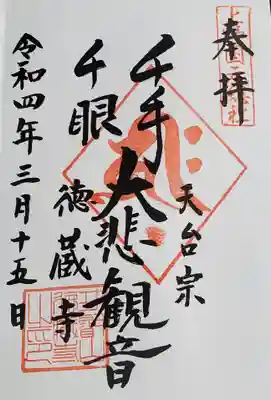 奉拝
天台宗
千手大悲観音
千眼
徳蔵寺
令和四年三月十五日